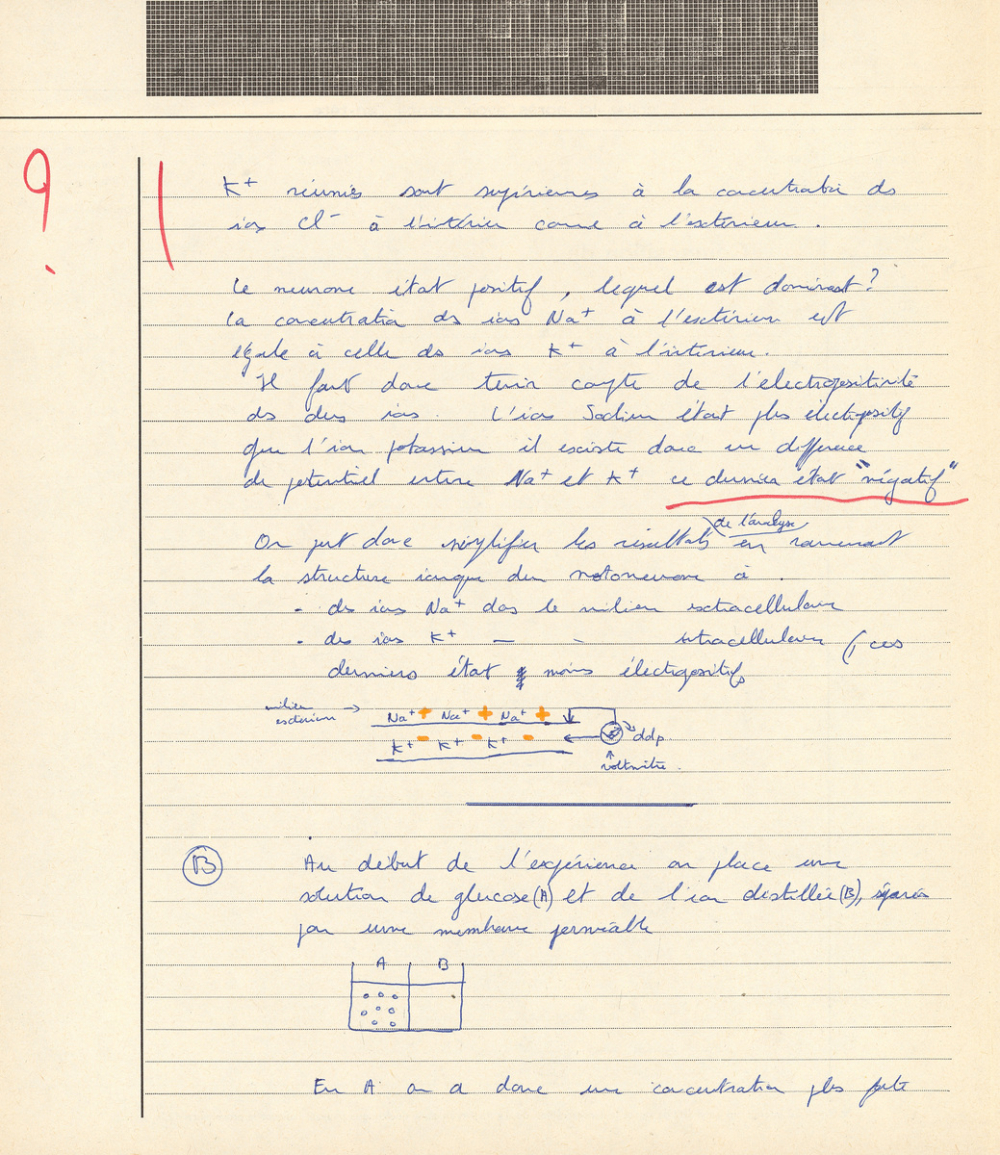 ?
K+ réunies sont supérieures à la concentration des
ions Cl- à l'intérieur comme à l'extérieur.
Le neurone étant positif, lequel est dominant?
La concentration des ions Na+ à l'extérieur est
égale à celle des ions K+ à l'intérieur.
Il faut donc tenir compte de l'électropositivité
des deux ions. L'ion Sodium étant plus électropositif
que l'ion potassium il existe donc une différence
de potentiel entre Na+ et K+ ce dernier étant "négatif"
On peut donc simplifier les résultats de l'analyse en ramenant
la structure ionique du motoneurone à
- des ions Na+ dans le milieu extracellulaire
- des ions K+ — - intracellulaire (, ces
derniers étant moins électropositifs
milieu extérieur → Na+ + Na+ + Na+ +
K+ - K+ - K+ - ddp
voltmètre.
B Au début de l'expérience on place une
solution de glucose (A) et de l'eau distillée (B), séparés
par une membrane perméable
A B
En A on a donc une concentration plus forte